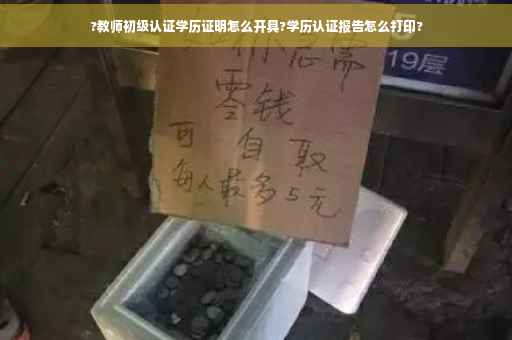 ?教师初级认证学历证明怎么开具?学历认证报告怎么打印?
如你急需
零钱
可自取
每人最多5元
19层